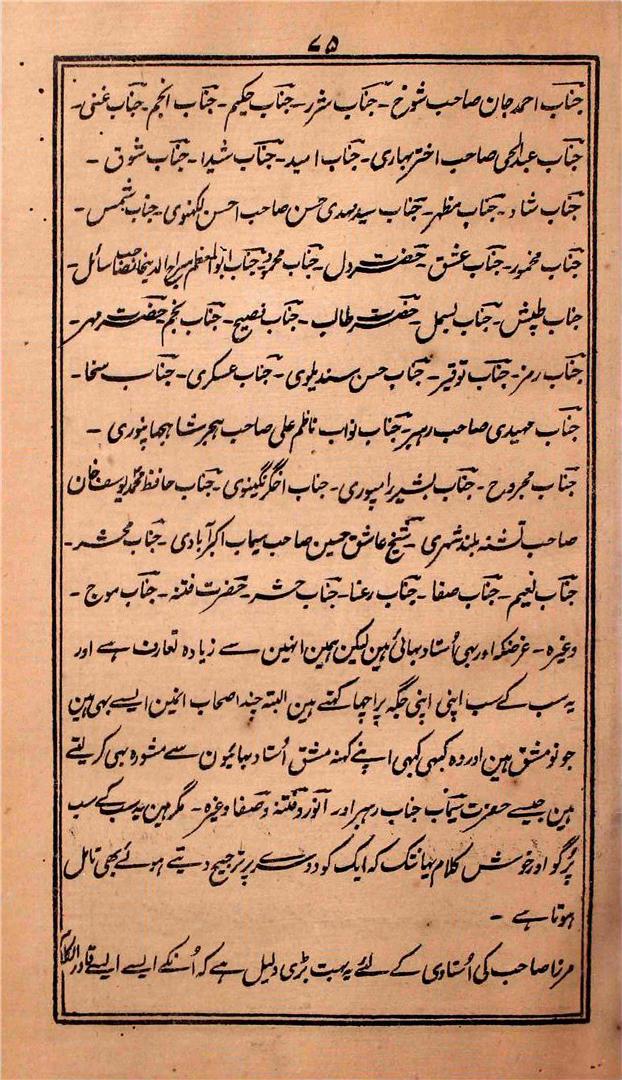 ۷۵
جناب احمد جان صاحب شوخ - جناب شرر - جناب حکیم - جناب انجم - جناب غنی -
جناب عبدالحی صاحب اختر بہاری - جناب امید - جناب شیدا - جناب شوق -
جناب شاد - جناب مظہر - جناب سید مہدی حسن صاحب احسن لکہنوی - جناب شمس -
جناب مخمور - جناب عشق - حضرت دل - جناب محمود جناب ابوالمعظم سراج الدینخانصاحب سائل -
جناب طپش - جناب بسمل - حضرت طالب - جناب نصیح - جناب نجم - حضرت مہر -
جناب رمز - جناب توقیر - جناب حسن سندیلوی - جناب عسکری - جناب سخا -
جناب مہیدی صاحب رہبر - جناب نواب ناظم علی صاحب ہجر شاہجہانپوری -
جناب مجروح - جناب بشیر رامپوری - جناب اخگر نگینوی - جناب حافظ محمد یوسف خان
صاحب تشنہ بلند شہری - شیخ عاشق حسین صاحب سیماب اکبرآبادی - جناب محشر -
جناب نعیم - جناب صفا - جناب رعنا - جناب حشر - حضرت فتنہ - جناب موج -
وغیرہ - غرضکہ اور بہی اُستاد بہائی ہین لیکن ہمین انہین سے زیادہ تعارف ہے اور
یہ سب کے سب اپنی اپنی جگہ پر اچہا کہتے ہین البتہ چند اصحاب انمین ایسے بہی ہین
جو نو مشق ہین اور وہ کبہی کبہی اپنے کہنہ مشق اُستاد بہائیون سے مشورہ بہی کر لیتے
ہین جیسے حضرت سیماب جناب رہبر اور انور و فتنہ و صفا وغیرہ - مگر ہین یہ سب کے سب
پُرگو اور خوش کلام یہانتک کہ ایک کو دوسرے پر ترجیح دیتے ہوئے بھی تامل
ہوتا ہے -
مرزا صاحب کی اُستادی کے لئے یہ بہت بڑی دلیل ہے کہ اُنکے ایسے ایسے قادر الکلام